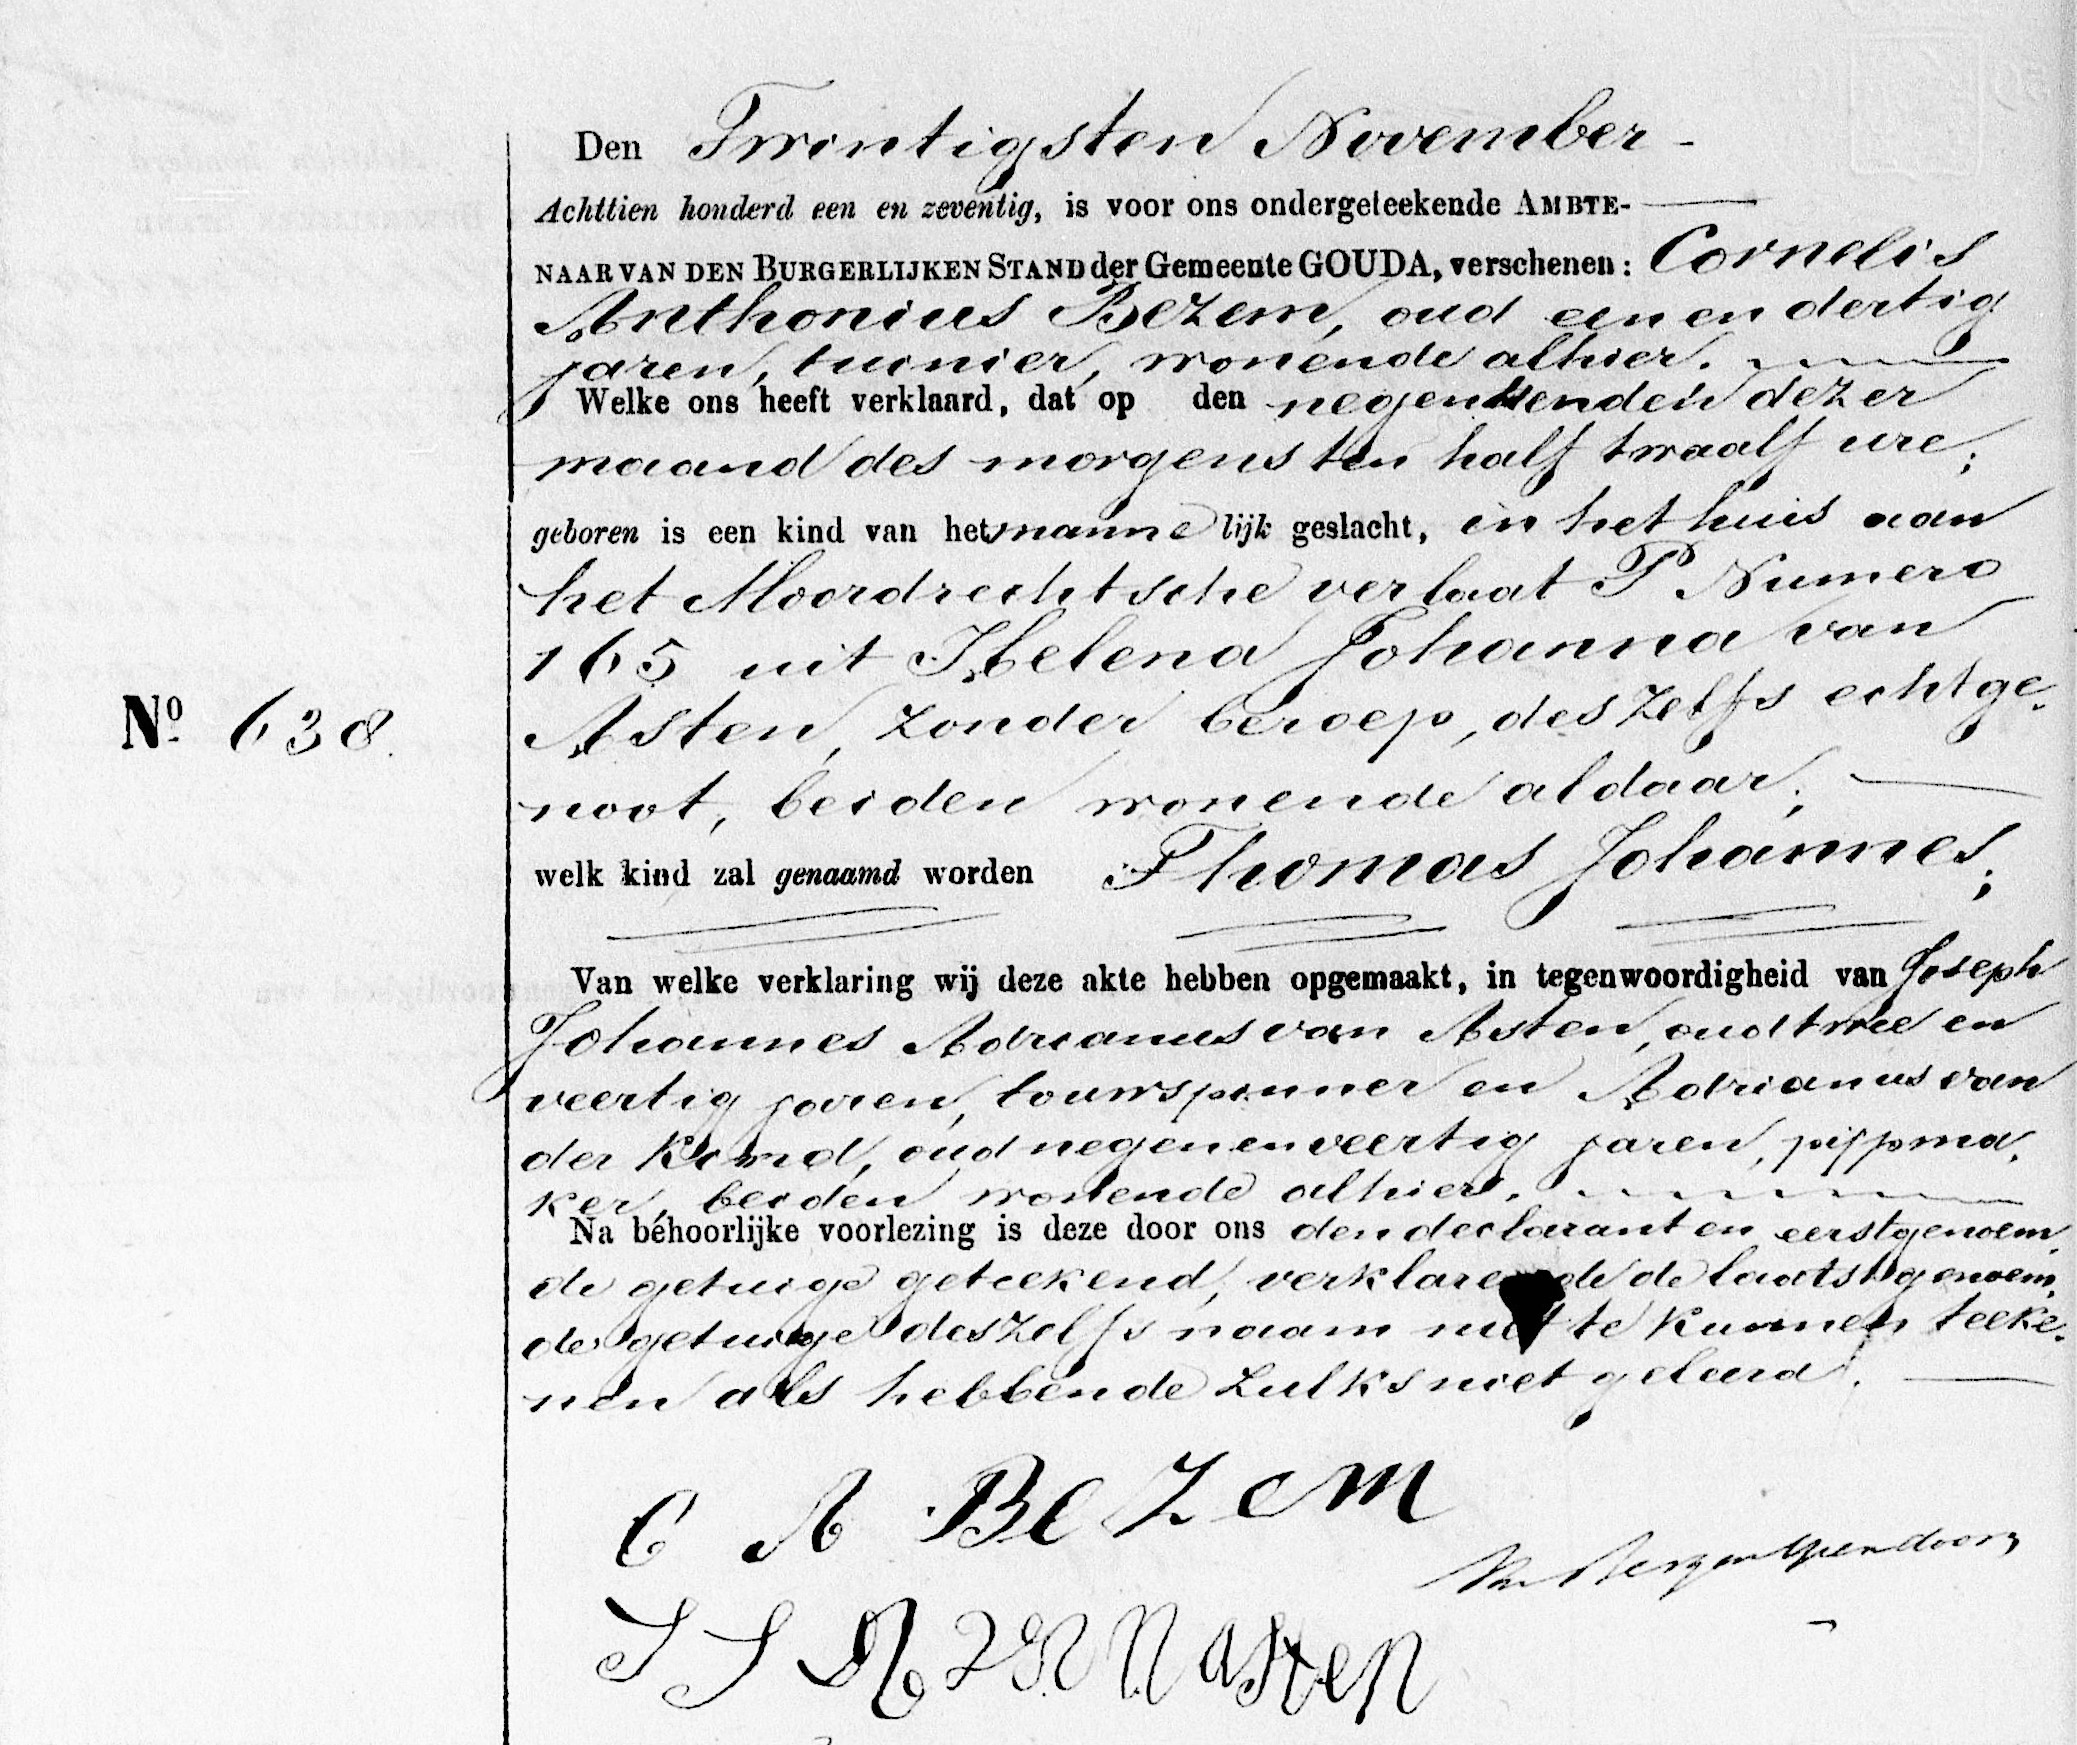 Den Twintigsten November -
Achttien honderd een en zeventig, is voor ons ondergeteekende AMBTE-
NAAR VAN DEN BURGERLIJKEN STAND der Gemeente GOUDA, verschenen: Cornelis
Anthonius Bezem, oud een en dertig
jaren, tuinier, wonende alhier.
Welke ons heeft verklaard, dat op den negentienden dezer
maand des morgens ten half twaalf ure;
geboren is een kind van het mannelijk geslacht, in het huis aan
het Moordrechtsche verlaat P Numero
165 uit Helena Johanna van
No 638.
Asten, zonder beroep, deszelfs echtge-
noot, beiden wonende aldaar;
welk kind zal genaamd worden Thomas Johannes;
Van welke verklaring wij deze akte hebben opgemaakt, in tegenwoordigheid van Joseph
Johannes Adrianus van Asten, oud twee en
veertig jaren, touwspinner en Adrianus van
der Kind, oud negenenveertig jaren, pijpma-
ker, beiden wonende alhier.
Na behoorlijke voorlezing is deze door ons den declarant en eerstgenoem-
de getuige geteekend, verklarende de laatstgenoem-
de getuige deszelfs naam niet te kunnen teeke-
nen als hebbende zulks niet geleerd.
C A BeZem
J J A van Asten